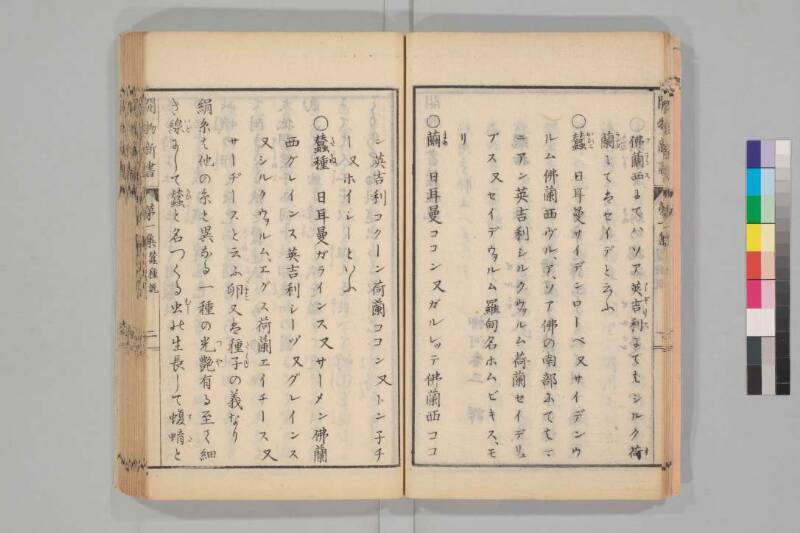 佛蘭西にてハソア英吉利にてもシルク荷
蘭にてはセイデと云ふ
〇蠶 日耳曼サイデンローペ又サイデンウ
ルム佛蘭西ヴル、ア、ソア佛の南部にてはマ
ニアン英吉利シルクウヮルム荷蘭セイデリュ
プス又セイデウヮルム羅甸名ホムビキス、モ
リ
〇繭 日耳曼ココン又ガルレッテ佛蘭西ココ
ン英吉利コクーン荷蘭ココン又トン子チ
ー又ホイシーといふ
〇蠶種 日耳曼ガライン ス又サーメン佛蘭
西グレインス英吉利シーヅ又グレインス
又シルクウヮルム、エグス荷蘭エイチース又
サーヂースと云ふ卵又は種子の義なり
絹糸は他の糸と異なる一種の光艷有る至て細
き線にして蠶と名つくる虫の生長して蝮蛸と
開物新書 第一集 蠶種説 二